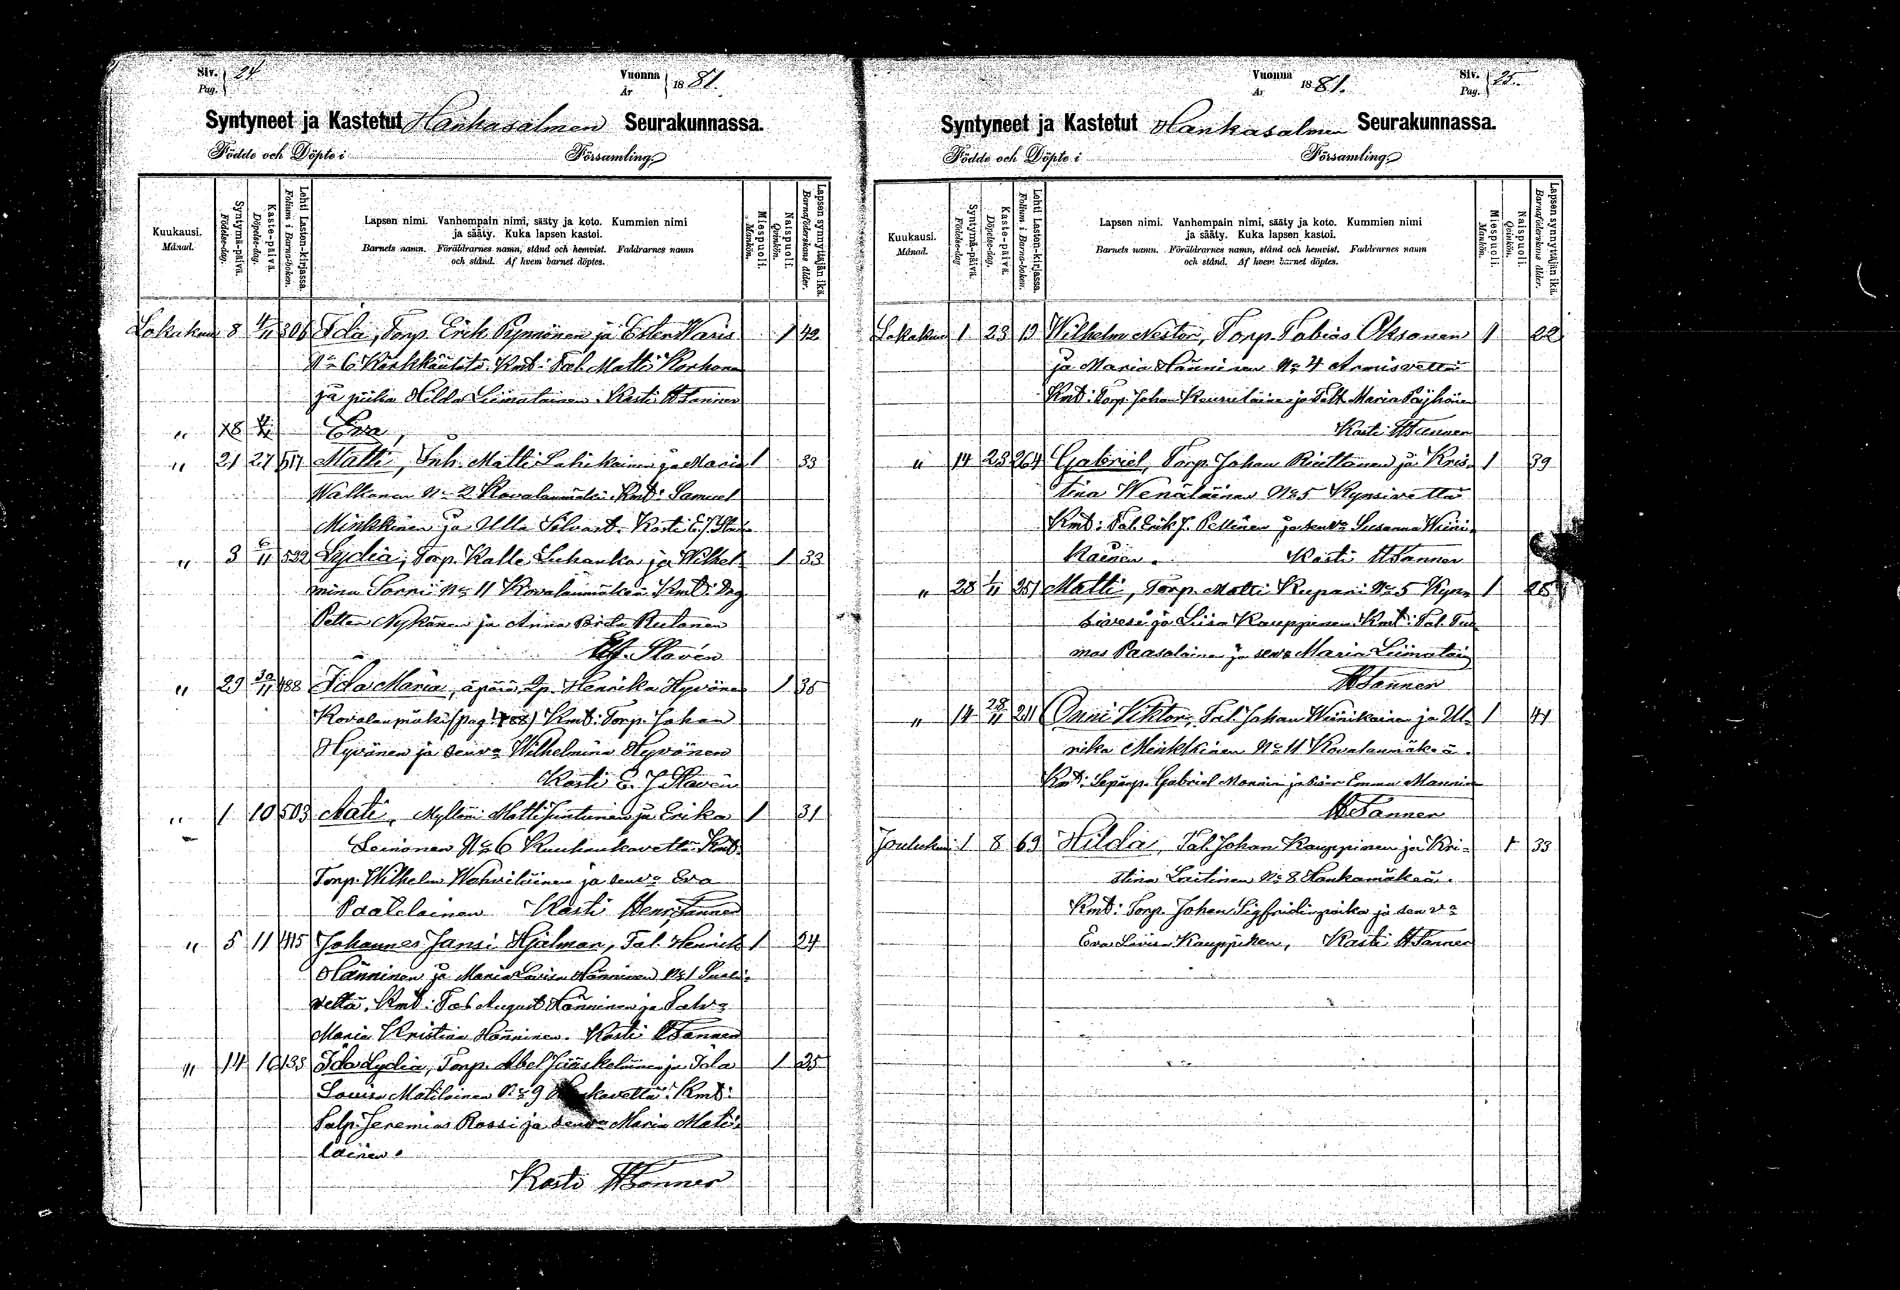 Siv. Pag. 24
Vuonna År 1881.
Syntyneet ja Kastetut Hankasalmen Seurakunnassa.
Födde och Döpte i Församling
Kuukausi. Månad.
Syntymä-päivä. Födelse-dag.
Kaste-päivä. Döpelse-dag.
Lehti Lasten-kirjassa. Folium i Barna-boken.
Lapsen nimi. Vanhempain nimi, sääty ja koto. Kummien nimi
ja sääty. Kuka lapsen kastoi.
Barnets namn. Föräldrarnes namn, stånd och hemvist. Faddrarnes namn
och stånd. Af hvem barnet döptes.
Miespuoli. Mankön.
Naispuoli. Qvinkön.
Lapsen synnyttäjän ikä. Barnaföderskans ålder.
Lokakuu 8 4/11 306 Ida, Torp. Erik Pynnönen ja Ester Waris 1 42
No 6 Kärkkäälätä. Kmt: Tal. Matti Korhonen
ja piika Hilda Liimatainen. Kasti HTanner
" 8 Eva,
" 21 27 517 Matti, Inh. Matti Lahikainen ja Maria 1 33
Walkonen No 2 Kovalanmäkeä. Kmt: Samuel
Minkkinen ja Ulla Kasti E. J. Slavén
" 3 6/11 532 Lydia, Torp. Kalle Luhanka ja Wilhel- 1 33
mina Sorri No 11 Kovalanmäkeä. Kmt: Drg
Petter Nykänen ja Anna Brita Rutanen
Slavén
" 29 30/11 488 Ida Maria, äpärä, Henrika Hyvönen 1 35
Kovalanmäki (pag. 488) Kmt: Torp. Johan
Hyvönen ja senva Wilhelmina Hyvönen
Kasti E. J. Slavén
" 1 10 503 Mati, Mylläri Matti Juntunen ja Erika 1 31
Leinonen No 6 Kuuhankavettä. Kmt:
Torp. Wilhelm Wahvilainen ja senva Eva
Paatelainen Kasti Henr. Tanner
" 5 11 415 Johannes Jansi Hjalmar, Tal. Henrik 1 24
Hänninen ja Maria Lovisa Hänninen No 1 Suoli-
vettä. Kmt: Tal. August Hänninen ja Talva
Maria Kristina Hänninen. Kasti HTanner
" 14 16 133 Ida Lydia, Torp. Abel Jääskeläinen ja Ida 1 25
Lovisa Matilainen No 9 Kmt:
Talp. Jeremias Rossi ja senva Maria Mati-
lainen.
Kasti HTanner
Vuonna År 1881.
Siv. Pag. 25.
Syntyneet ja Kastetut Hankasalmen Seurakunnassa.
Födde och Döpte i Församling
Kuukausi. Månad.
Syntymä-päivä. Födelse-dag
Kaste-päivä. Döpelse-dag.
Lehti Lasten-kirjassa. Folium i Barna-boken.
Lapsen nimi. Vanhempain nimi, sääty ja koto. Kummien nimi
ja sääty. Kuka lapsen kastoi.
Barnets namn. Föräldrarnes namn, stånd och hemvist. Faddrarnes namn
och stånd. Af hvem barnet döptes.
Miespuoli. Mankön.
Naispuoli. Qvinkön.
Lapsen synnyttäjän ikä. Barnaföderskans ålder.
Lokakuu 1 23 19 Wilhelm Nestor, Torp. Tobias Oksanen 1 22
ja Maria Hänninen No 4 Armisvettä
Kmt: Torp. Johan ja Maria Pöyhönen
Kasti HTanner
" 14 23 264 Gabriel, Torp. Johan Riettanen ja Kris- 1 39
tina Wenäläinen No 5 Kynsivettä
Kmt: Tal. Erik J. Pellinen ja senva Susanna Weini-
kainen. Kasti HTanner
" 28 1/11 251 Matti, Torp. Matti Kupari No 5 Kyn- 1 28
sivesi ja Liisa Kauppinen. Kmt: Tal. Tuo-
mas Paasolainen ja senva Maria Liimatain
HTanner
" 14 28/11 211 Onni Viktor, Tal. Johan Weinikainen ja Ul- 1 41
rika Minkkinen No 11 Kovalanmäkeä.
Kmt: Sepänp. Gabriel Monnin ja sisar Emma Mannin
HTanner
Joulukuu 1 8 69 Hilda, Tal. Johan Kauppinen ja Kri- 1 33
stina Laitinen No 8 Hankamäkeä.
Kmt: Torp. Johan Sigfridinpoika ja senva
Eva Lovisa Kauppinen, Kasti HTanner